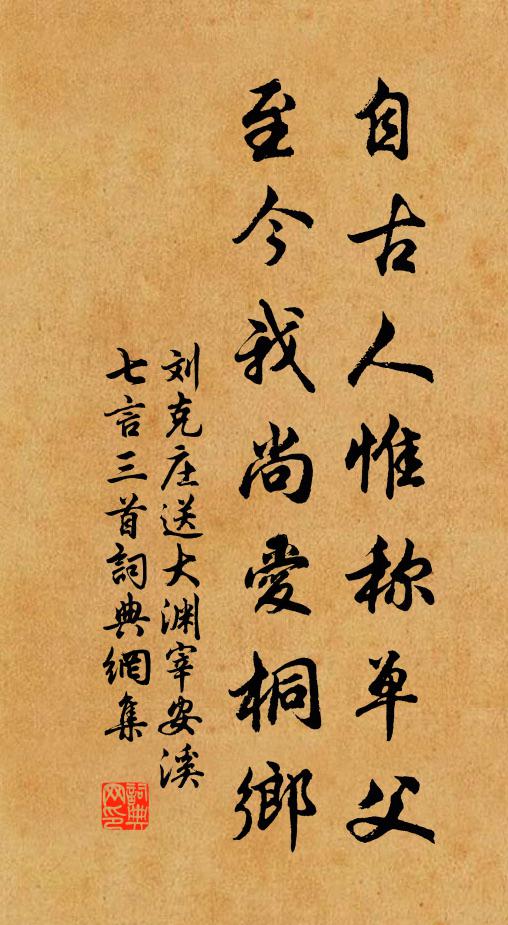 自古人惟称单父
至今我尚愛桐鄉
刘克庄送大渊宰安溪
七言三首詞典網集
詞典网印